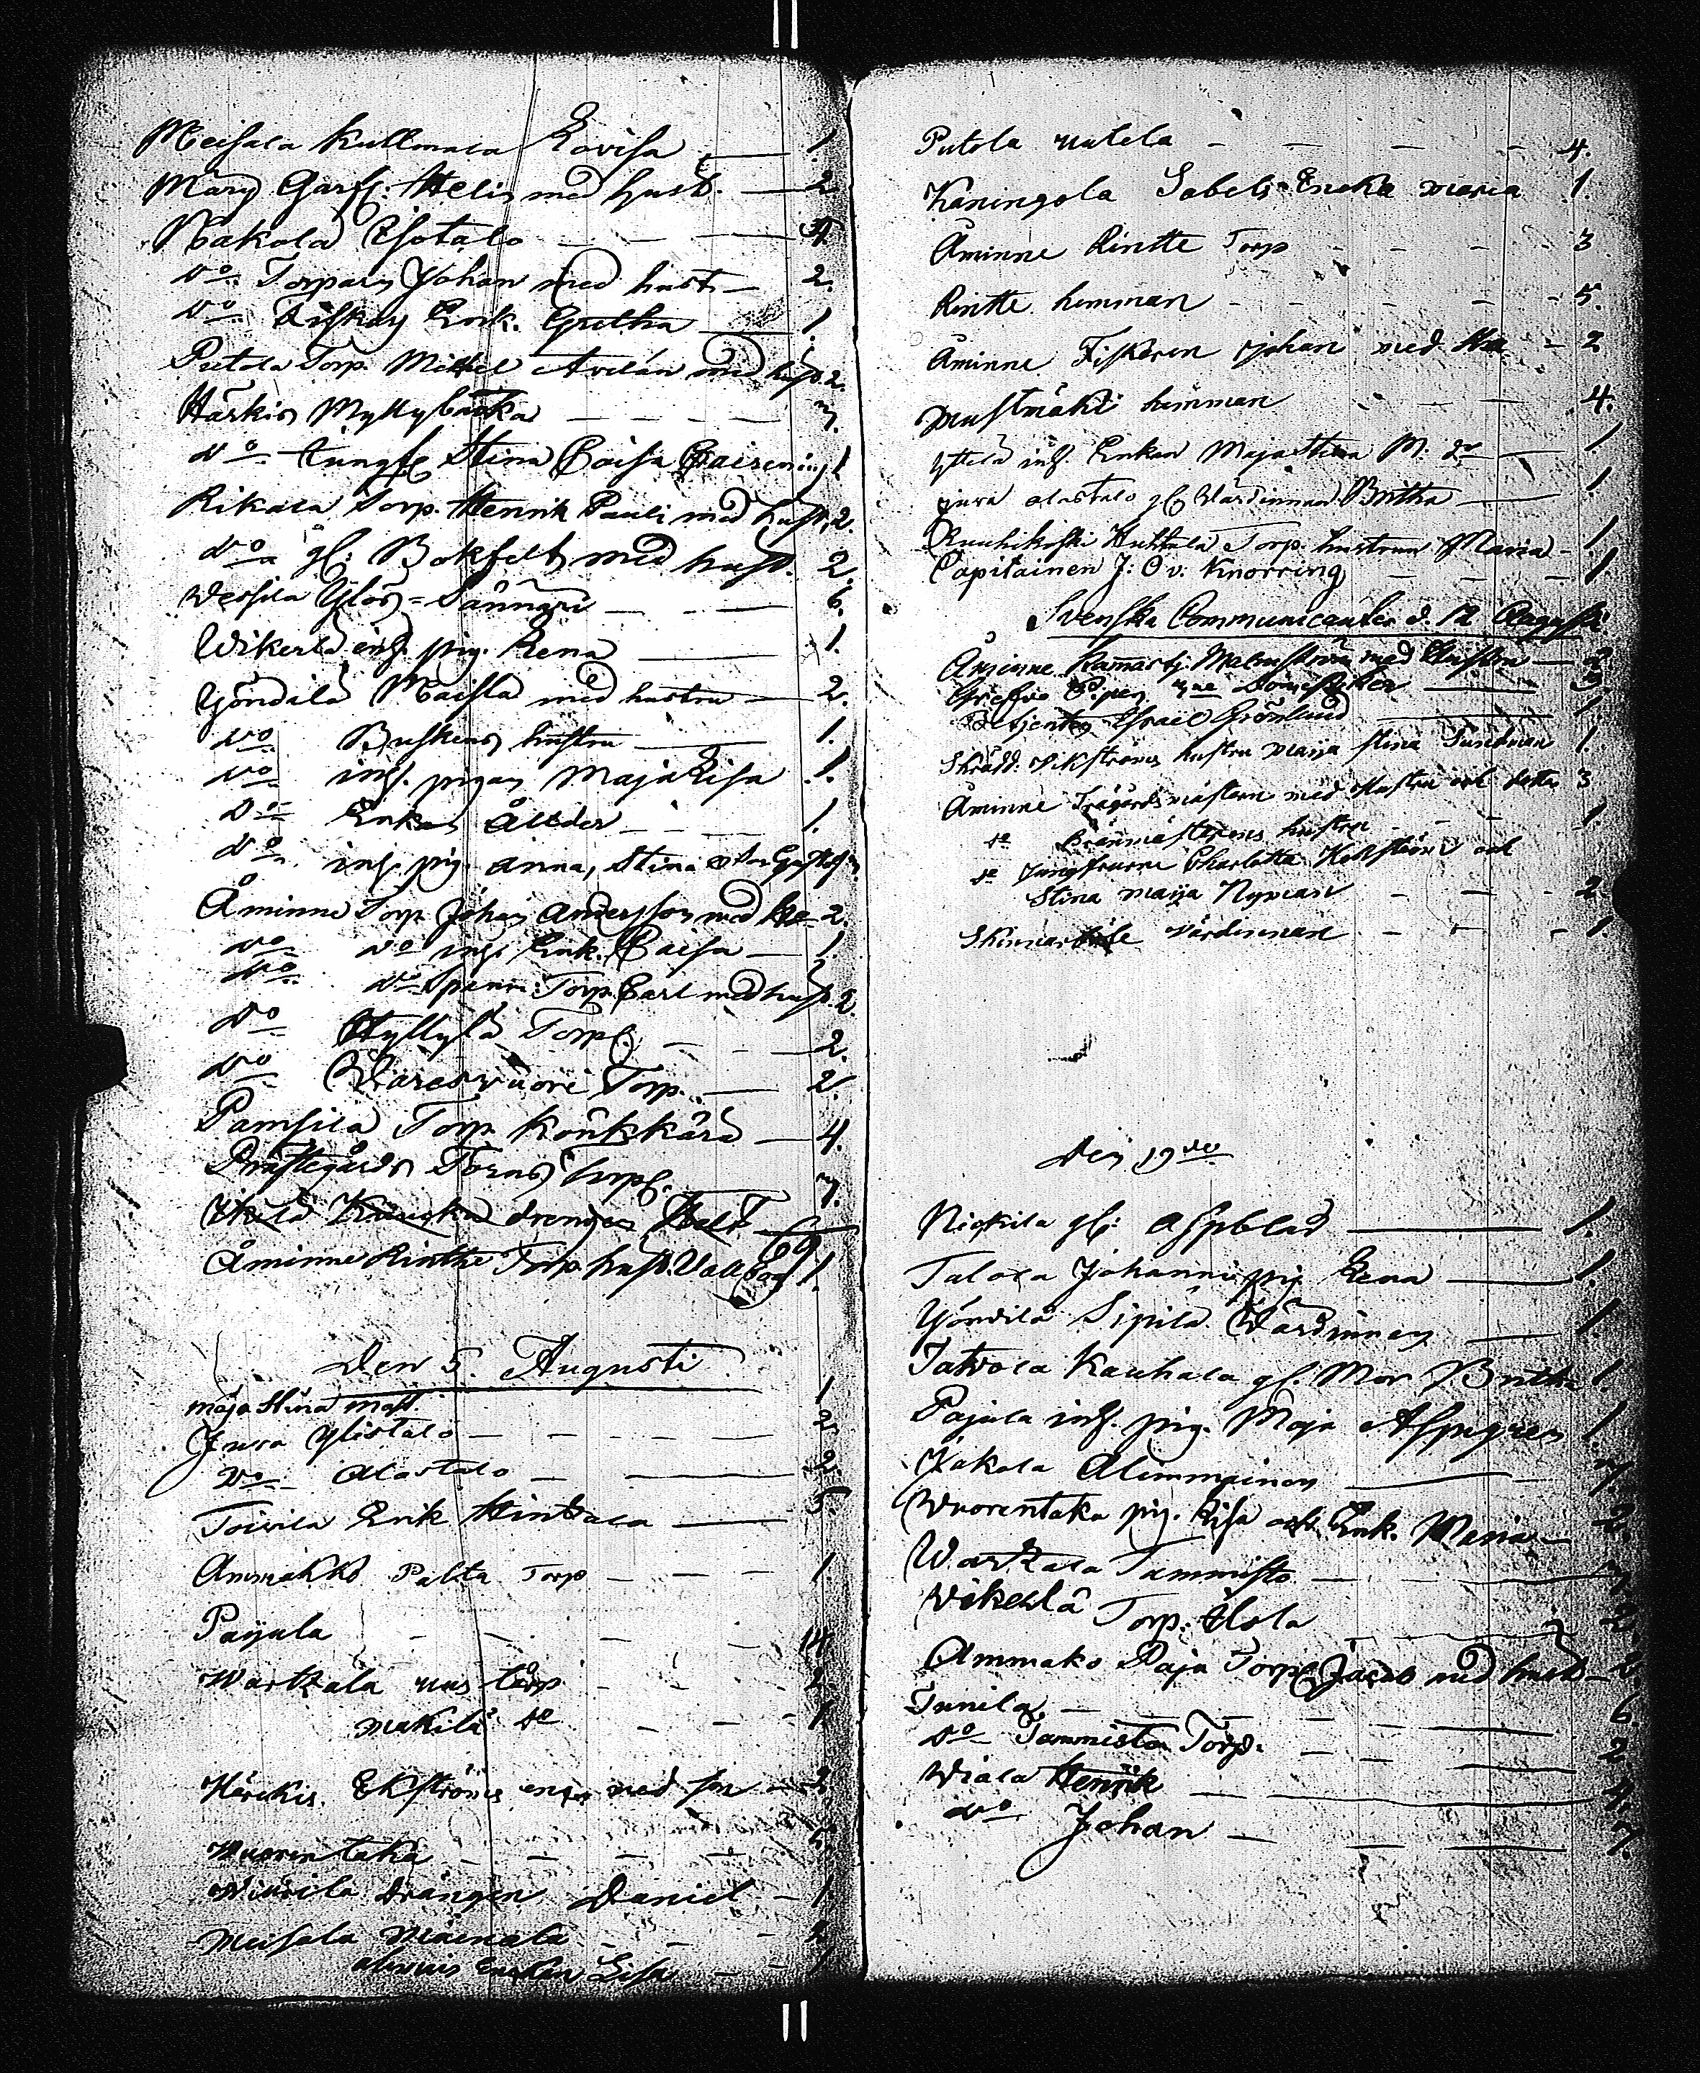 Meisala Kullmala Lovisa 1.
Märy Garfv. Helin med hust. 2
Nakola Isotalo 4
do Torparn Johan med hust. 2.
do Enk. Gretha 1.
Putola Torp. Mickel Avelån med hust. 2.
Härkis Myllybacka 7.
do Stina Caisa 1
Rikala Torp. Henrik Pauli med hust. 2.
do gl. Bokfelt med hust. 2.
Vessila Ylös = Sänngri 6.
Wikerlä inh. pig. Lena 1.
Yöndilä Maista med hustru 2.
do Buskens hustru 1.
do inh. pigan Maja Lisa 1.
do Enkan Ålder 1.
do inh. pig. Anna, Stina
Åminne Torp. Johan Andersson med 2.
do do inh. Enk. Caisa 1.
do do Torp. Carl med hust. 2.
do Hyllylä Torp. 2.
do Waresvuori Torp. 2.
Pamsila Torp. Könkkärä 4.
Prästegårds Torns torp. 7.
drengen
69
Åminne Rinthe Torp. hust. 1.
Den 5. Augusti
Maja Stina Matt. 1
Jura Ylistalo 2
do Alastalo 2
Toivila Erik Hintala 5.
Ammakko Palta Torp 1.
Payula 14
Wartzala uus torp 2
Mäkilä do 1
Härckis. Ekströms med son 2
Wuorentaka 5
Wiurila Drängen Daniel 1.
Meisala 2
Enkan Lisa 1
Putola uutela 4.
Kaningola Sabels Encka Maria 1.
Åminne Rintte Torp 3
Rintte hemman 5.
Åminne Fiskaren Johan med 2
Mustmäki hemman 4.
Yttelä inh. Enkan Maja Stina M. dr 1
Jura Alastalo gl. Wärdinnan Britha 1.
Ruuhikoski Huhtala Torp. hustrun Maria 1.
Capitainen J: O v: Knorring 1
Svenska Communicanter d. 12 Augusti
Åminne Malmström med hustru 2
3
Betjenten Israel Grönlund 1
Skrädd: Vikströms hustru Maija Stina Sundman 1.
Åminne Trägårdsmästern med Hustru och dotter 3
do Brännmästerens hustru 1.
do Jungfrurne Charlotta Hellström och
Stina Maija Nyman 2
Värdinnan 1.
Den 19de
Nickila gl: Aspblad 1.
Talola Johanni pig Lena 1.
Yöndilä Sipilä Wärdinnan 1.
Tatvola Kauhala gl. Mor Britha 1.
Pajula inh. pig. Maja Aspegren 1.
Jakola Alimmainen 7.
Wuorentaka pig. Lisa och Enk. Maria 2.
Wartzala Tammisto 7
Vikerlä Torp. Ylola 2
Ammako Paja Torp. Jacob med hust. 2
Tunila 6.
do Tammisto Torp. 2
Wiala Henrik 4.
do Johan 7.